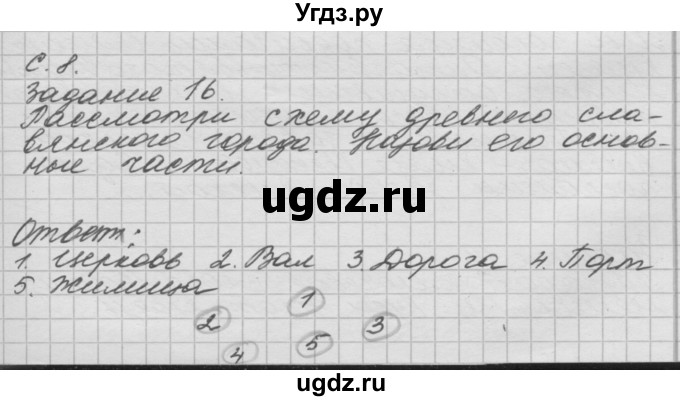 Угдз.ру
С. 8.
Задание 16.
Рассмотри схему древнего сла-
вянского города. Назови его основ-
ные части.
ugdz.ru
Ответ:
1. Церковь 2. Вал 3. Дорога 4. Порт
5. Жилища
ugdz.ru
1
2
3
4
5
ugdz.ru